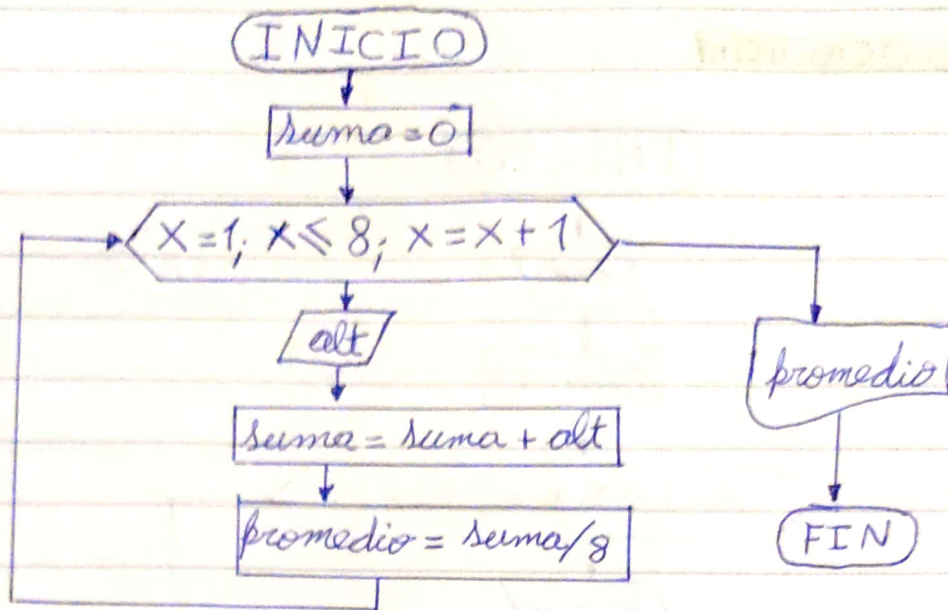 INICIO
suma = 0
x = 1; x ≤ 8; x = x + 1
alt
suma = suma + alt
promedio = suma/8
promedio
FIN